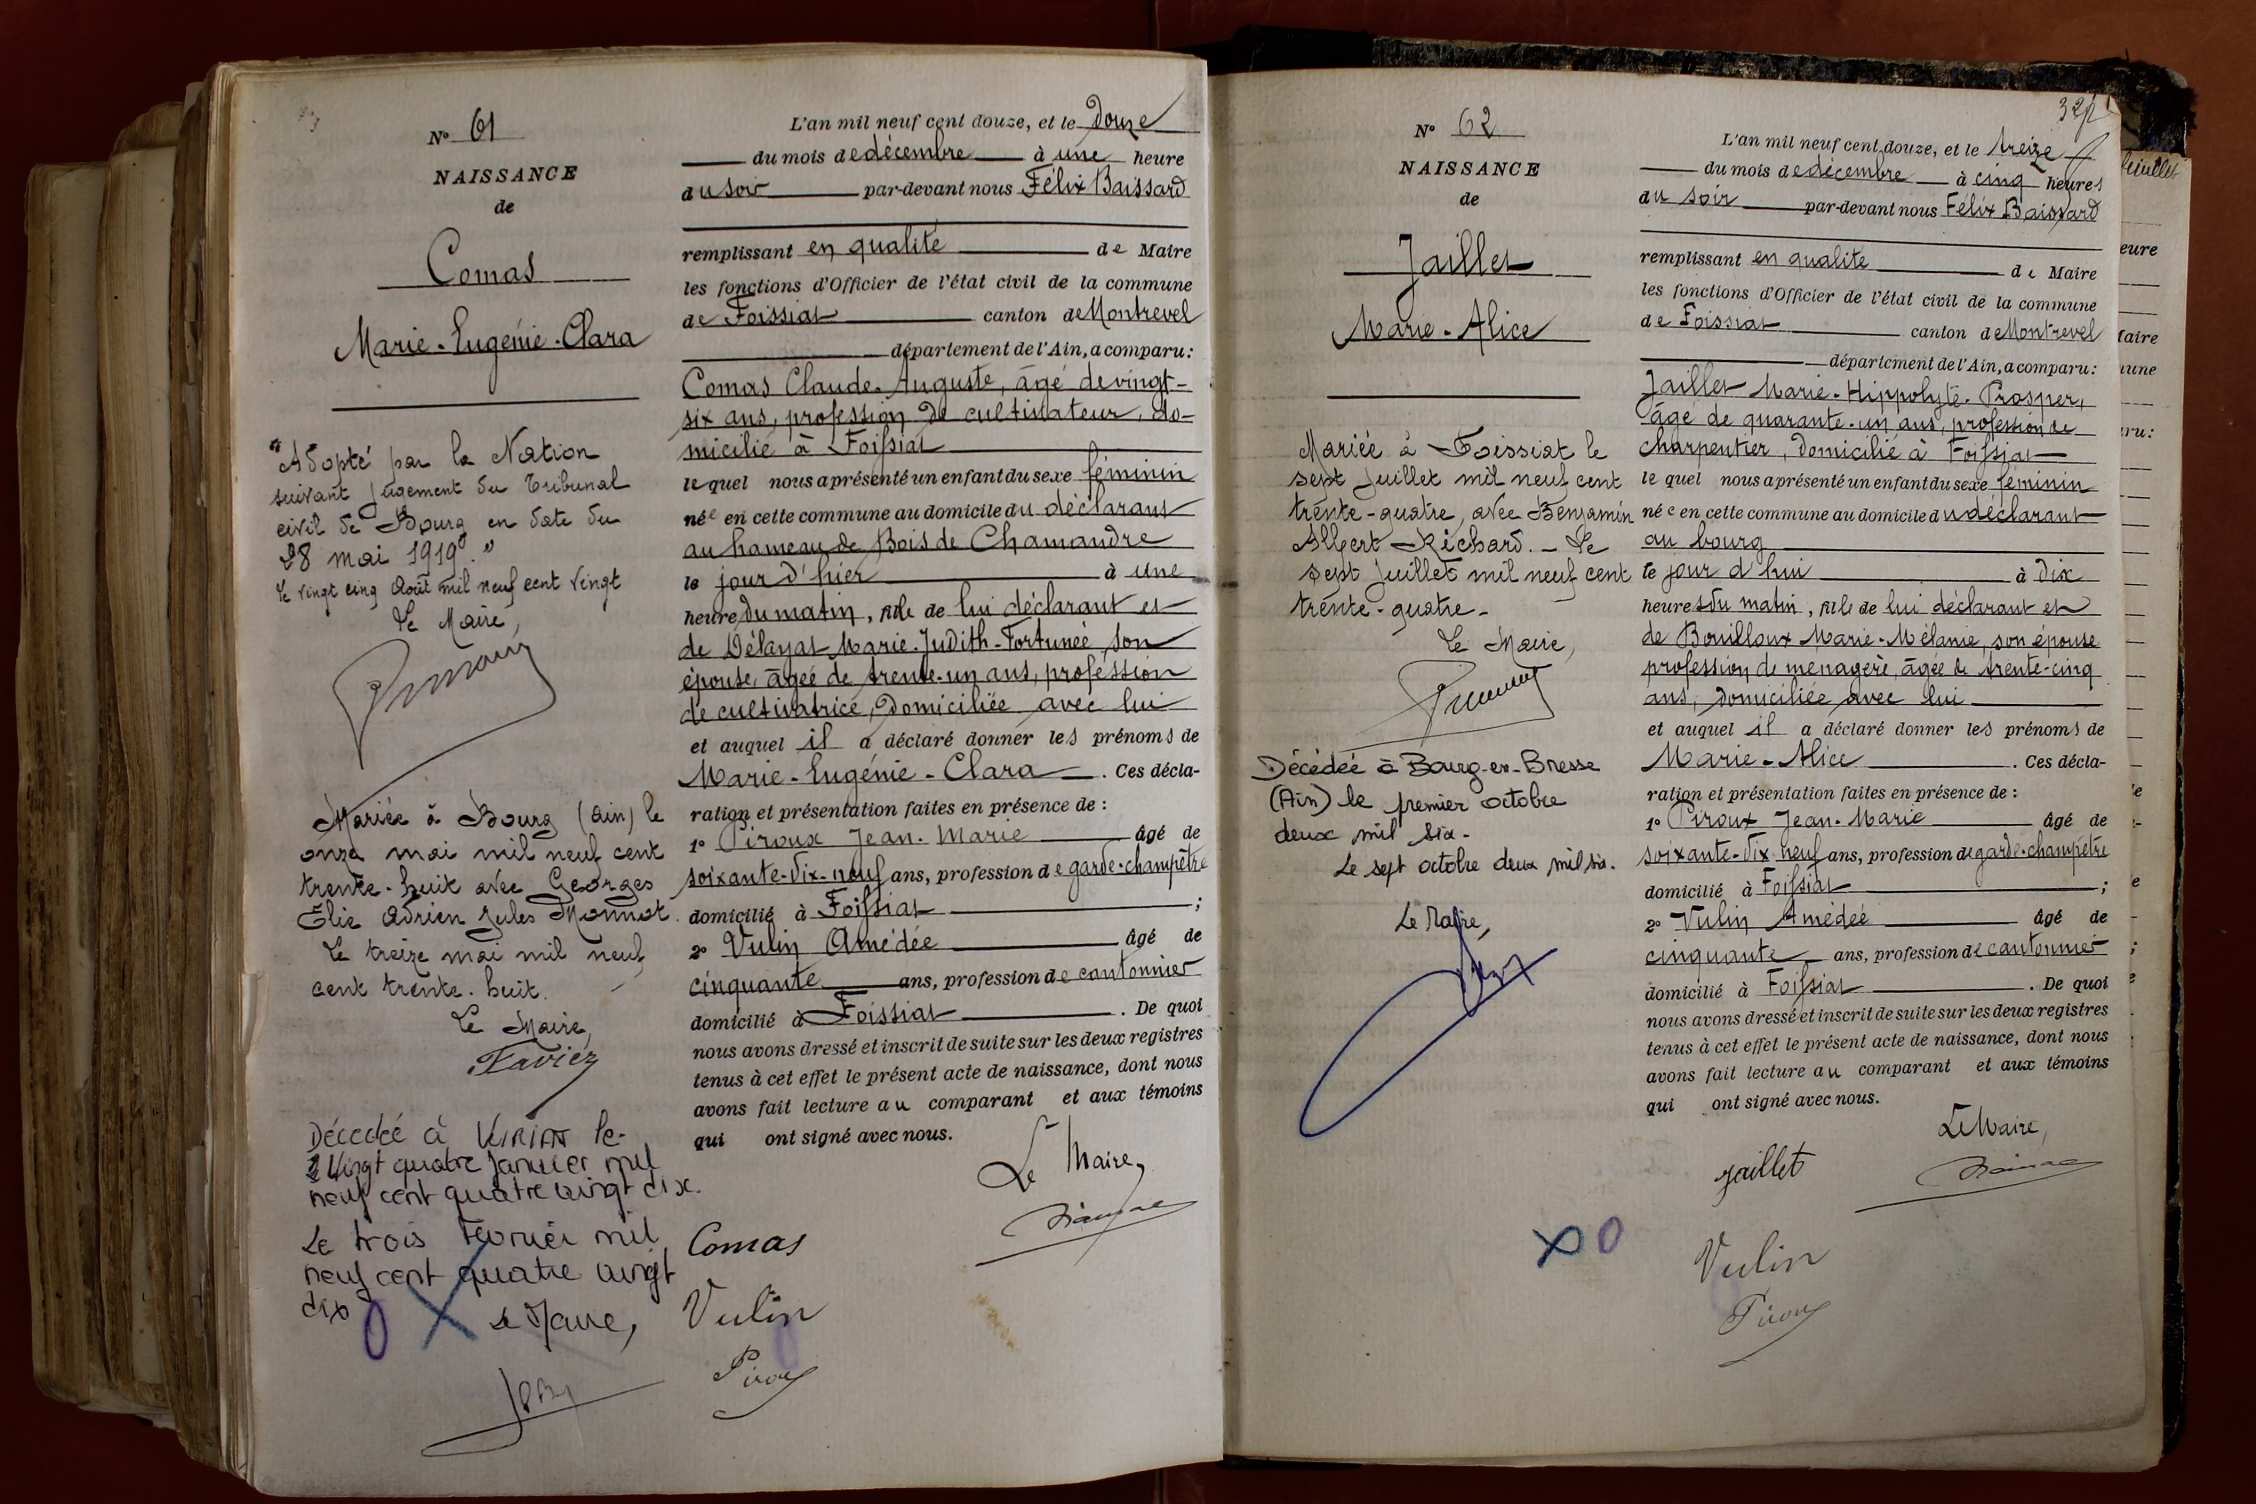 N° 61
NAISSANCE
de
Comas
Marie-Eugénie-Clara
"Adopté par la Nation
suivant jugement du Tribunal
civil de Bourg en date du
28 mai 1919."
Le vingt cinq Août mil neuf cent vingt
Le Maire,
Mariée à Bourg (Ain) le
onze mai mil neuf cent
trente-huit avec Georges
Elie Adrien Jules Monnot.
Le treize mai mil neuf
cent trente-huit.
Le Maire,
Favier
Décédée à VIRIAT le
Vingt quatre Janvier mil
neuf cent quatre vingt dix.
Le trois Février mil
neuf cent quatre vingt
dix
Le Maire,
L'an mil neuf cent douze, et le douze
du mois de décembre à une heure
du soir par-devant nous Félix Baissard
remplissant en qualité de Maire
les fonctions d'Officier de l'état civil de la commune
de Foissiat canton de Montrevel
département de l'Ain, a comparu:
Comas Claude-Auguste, âgé de vingt-
six ans, profession de cultivateur, do-
micilié à Foissiat
lequel nous a présenté un enfant du sexe féminin
née en cette commune au domicile du déclarant
au hameau de Bois de Chamandre
le jour d'hier à une
heure du matin, fille de lui déclarant et
de Délayat Marie-Judith-Fortunée son
épouse, âgée de trente-un ans, profession
de cultivatrice, domiciliée avec lui
et auquel il a déclaré donner les prénoms de
Marie-Eugénie-Clara. Ces décla-
ration et présentation faites en présence de :
1° Piroux Jean-Marie âgé de
soixante-dix-neuf ans, profession de garde-champêtre
domicilié à Foissiat ;
2° Vulin Amédée âgé de
cinquante ans, profession de cantonnier
domicilié à Foissiat. De quoi
nous avons dressé et inscrit de suite sur les deux registres
tenus à cet effet le présent acte de naissance, dont nous
avons fait lecture au comparant et aux témoins
qui ont signé avec nous.
Le Maire,
Comas
Vulin
Piroux
32
N° 62
NAISSANCE
de
Jaillet
Marie-Alice
Mariée à Foissiat le
sept Juillet mil neuf cent
trente-quatre, avec Benjamin
Albert Richard. - Le
sept Juillet mil neuf cent
trente-quatre-
Le Maire,
Décédée à Bourg-en-Bresse
(Ain) le premier octobre
deux mil six.
Le sept octobre deux mil six.
Le Maire,
L'an mil neuf cent douze, et le treize
du mois de décembre à cinq heures
du soir par-devant nous Félix Baissard
remplissant en qualité de Maire
les fonctions d'Officier de l'état civil de la commune
de Foissiat canton de Montrevel
département de l'Ain, a comparu:
Jaillet Marie-Hippolyte-Prosper,
âgé de quarante-un ans, profession de
charpentier, domicilié à Foissiat
lequel nous a présenté un enfant du sexe féminin
née en cette commune au domicile du déclarant
au bourg
le jour d'hui à dix
heures du matin, fille de lui déclarant et
de Bouilloux Marie-Mélanie, son épouse
profession de ménagère, âgée de trente-cinq
ans, domiciliée avec lui
et auquel il a déclaré donner les prénoms de
Marie-Alice. Ces décla-
ration et présentation faites en présence de :
1° Piroux Jean-Marie âgé de
soixante-dix neuf ans, profession de garde-champêtre
domicilié à Foissiat ;
2° Vulin Amédée âgé de
cinquante ans, profession de cantonnier
domicilié à Foissiat. De quoi
nous avons dressé et inscrit de suite sur les deux registres
tenus à cet effet le présent acte de naissance, dont nous
avons fait lecture au comparant et aux témoins
qui ont signé avec nous.
Le Maire,
Jaillet
Vulin
Piroux
feuillet
eure
Maire
mune